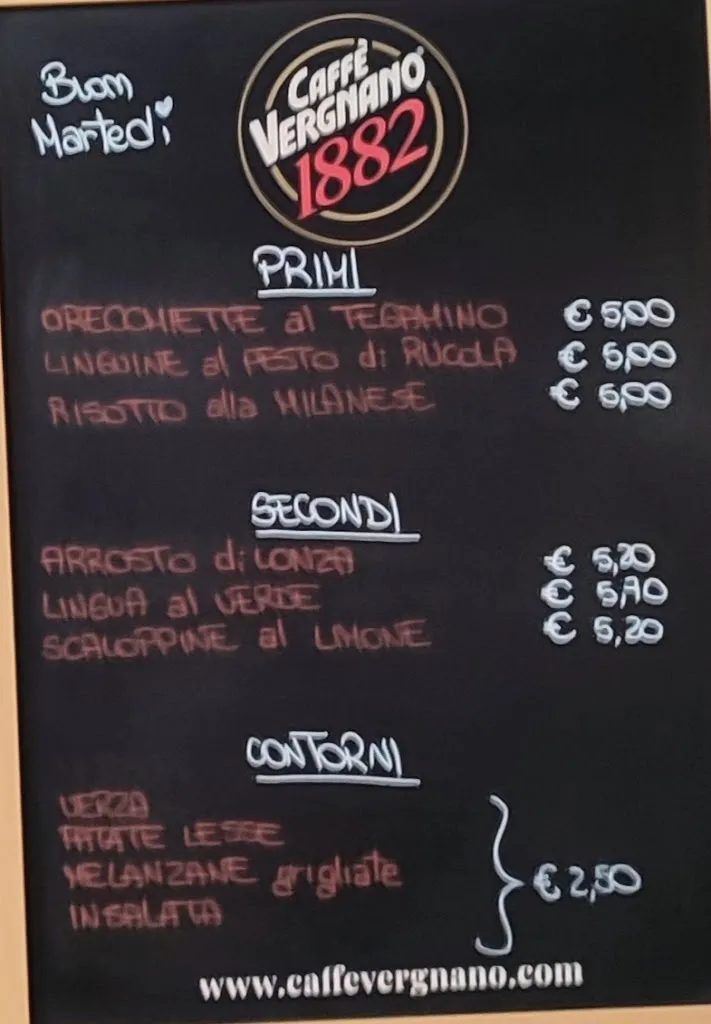 Buon
Martedì
CAFFÈ
VERGNANO
1882
PRIMI
ORECCHIETTE al TEGAMINO € 5,00
LINGUINE al PESTO di RUCOLA € 5,00
RISOTTO alla MILANESE € 5,00
SECONDI
ARROSTO di LONZA € 5,20
LINGUA al VERDE € 5,70
SCALOPPINE al LIMONE € 5,20
CONTORNI
VERZA
PATATE LESSE
MELANZANE grigliate
INSALATA
€ 2,50
www.caffevergnano.com